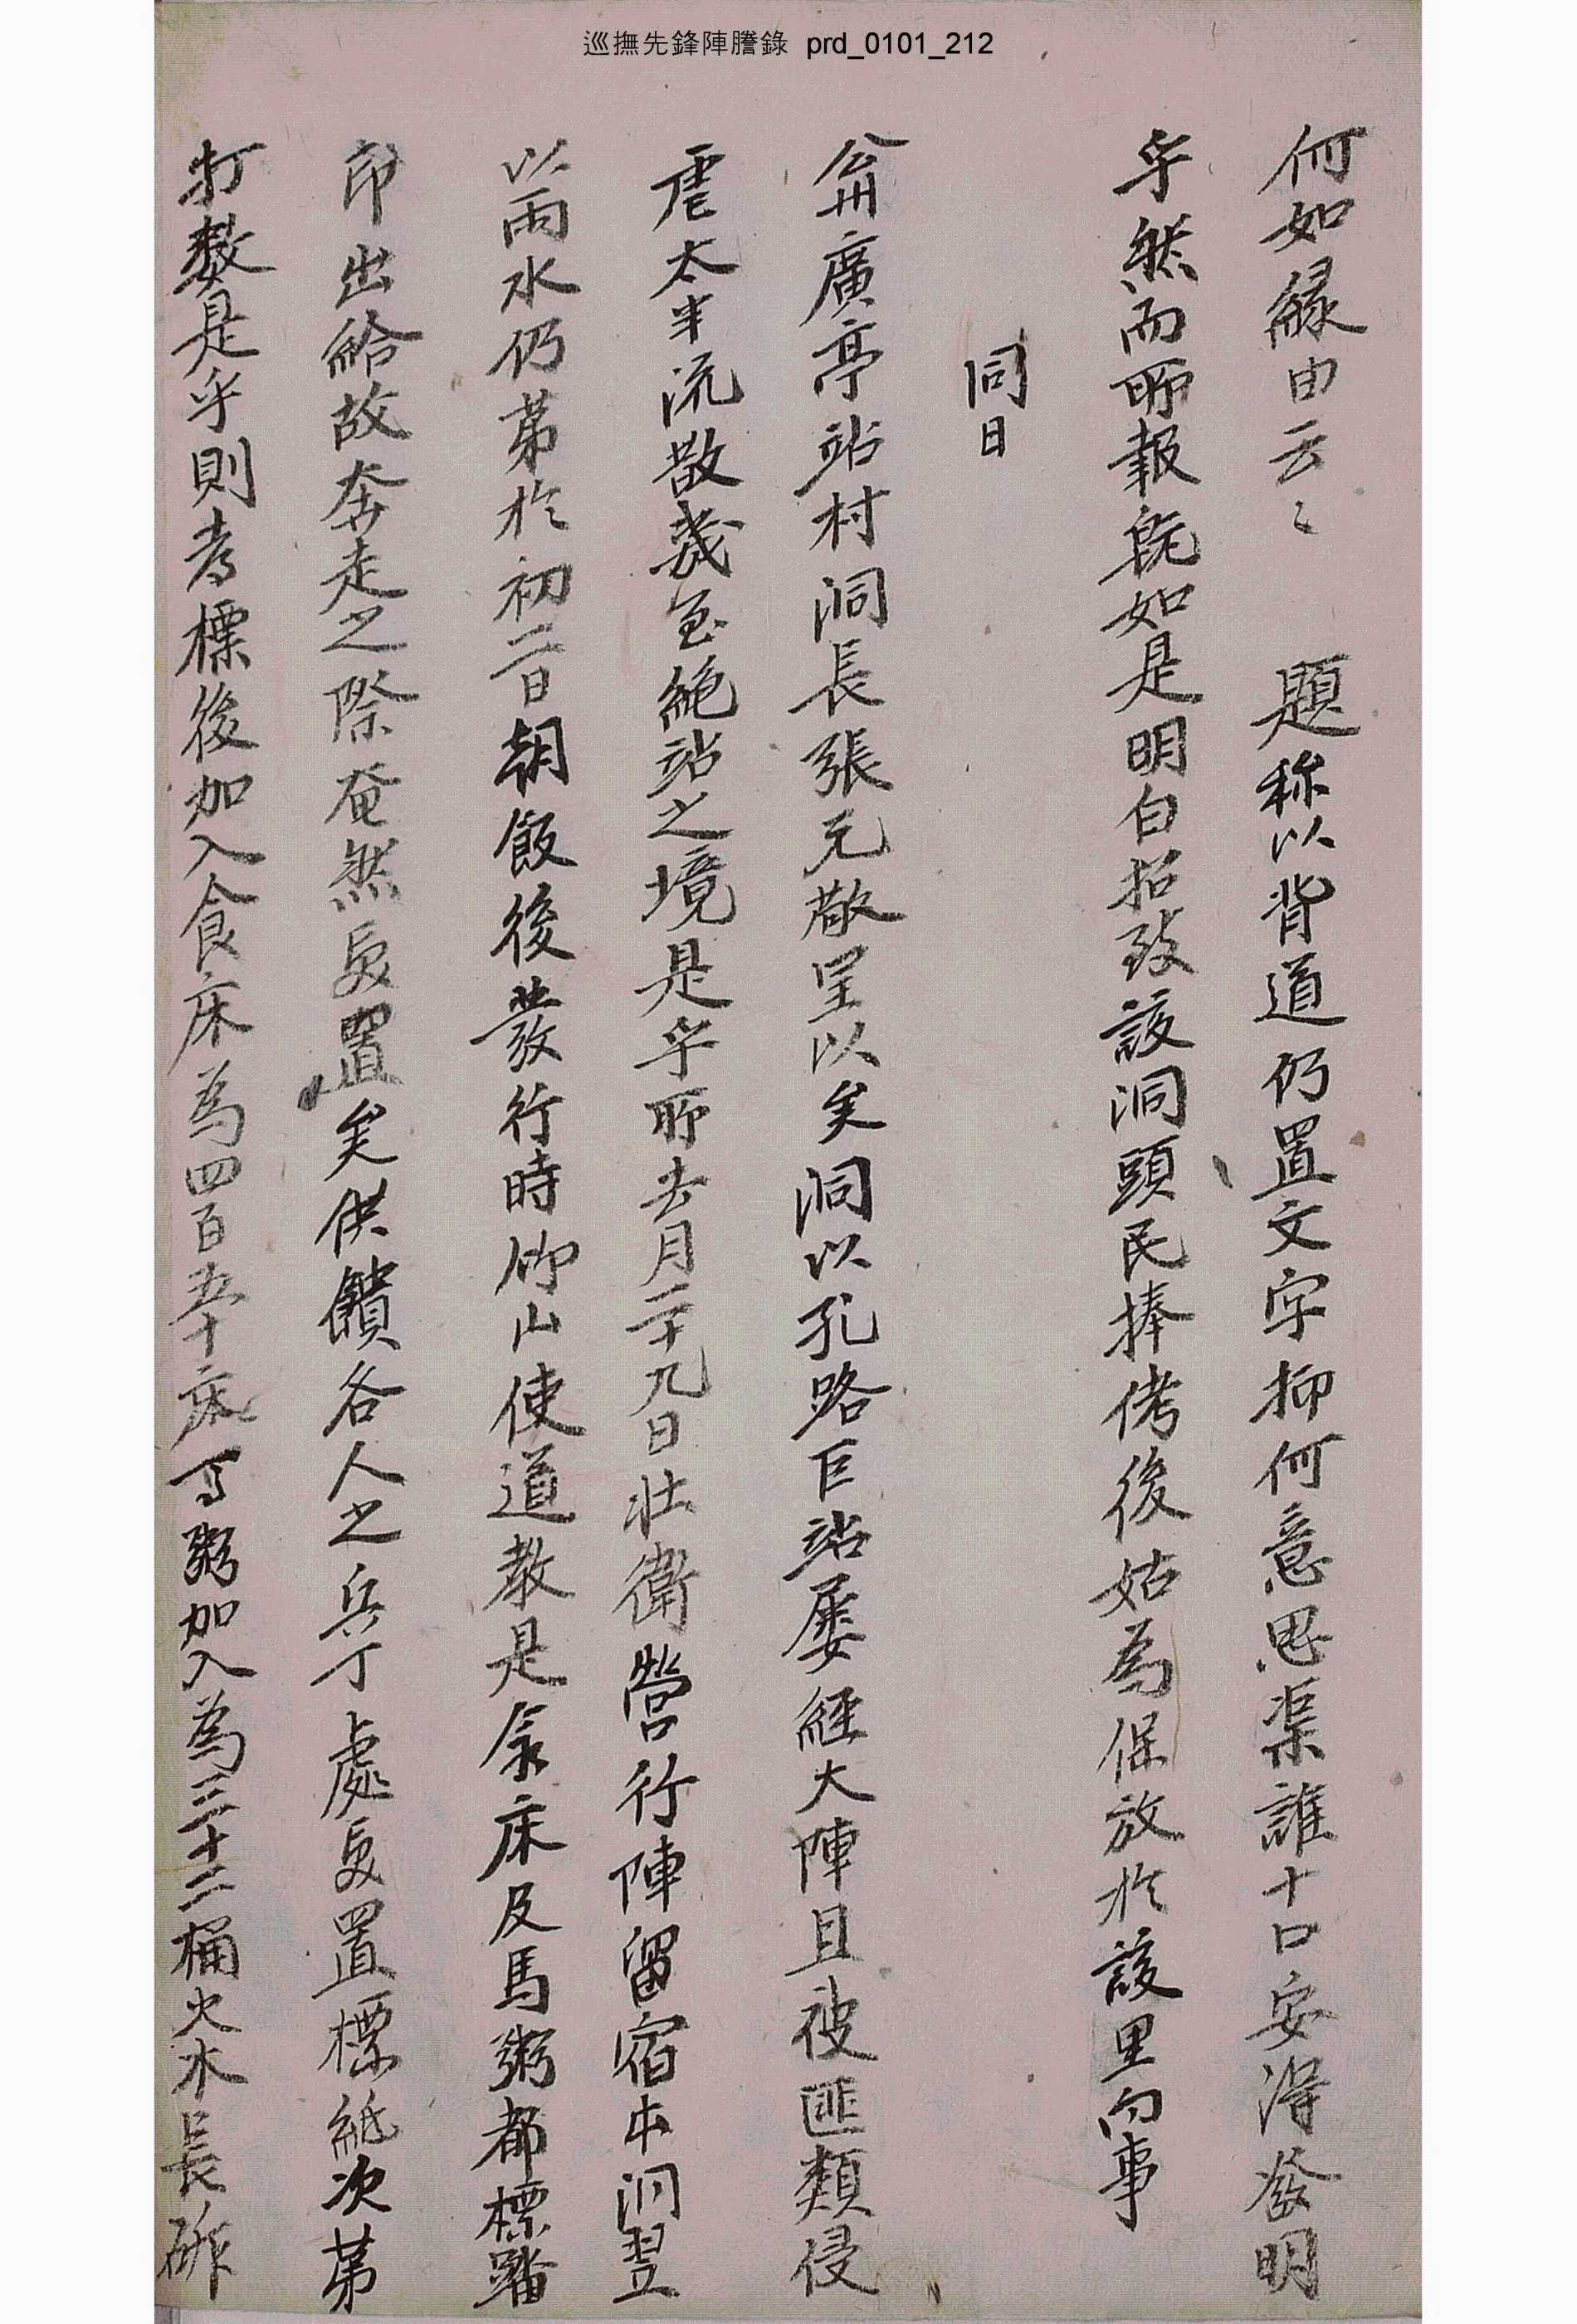 巡撫先鋒陣謄錄 prd_0101_212
何如緣由云々 題称以背道仍置文字抑何意思渠誰十口安得發明
乎然而所報旣如是明白招致該洞頭民捧侤後姑爲保放於該里向事
同日
公州廣亭站村洞長張元敬呈以矣洞以孔路巨站屢經大陣且被匪類侵
虐太半流散幾至絶站之境是乎所去月二十九日壯衛營行陣留宿本洞翌
以雨水仍第於初二日朝飯後發行時師山使道敎是食床及馬粥都標踏
印出給故奔走之際奄然良置矣供饋各人之兵丁處良置標紙次第
打數是乎則考標後加入食床為四百五十床馬粥加入為三十二桶火木長斫